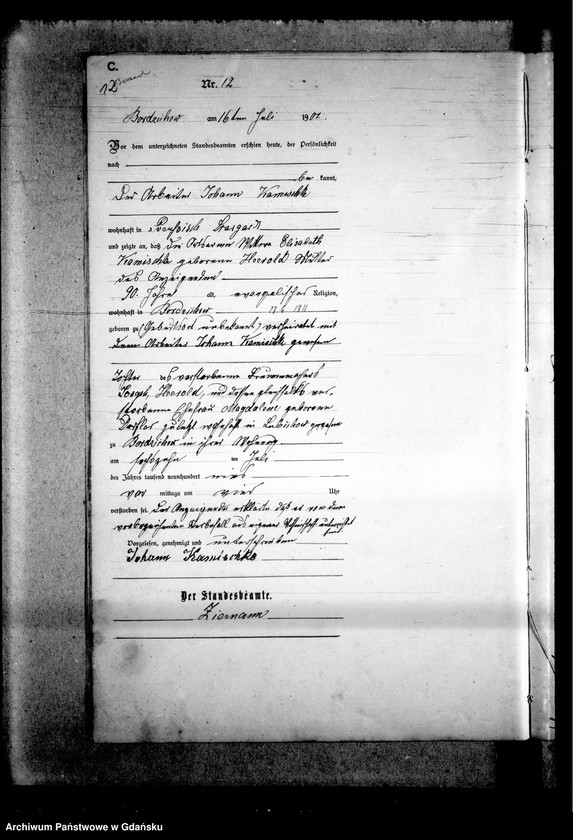 C.
Nr. 12
Bordzichow am 16ten Juli 1902.
Vor dem unterzeichneten Standesbeamten erschien heute, der Persönlichkeit
nach
be kannt,
der Arbeiter Johann Kamischke
wohnhaft in Preußisch Stargardt
und zeigte an, daß die Witwe Elisabeth
Kamischke geborene Heesold Mutter
des Anzeigenden
90 Jahre alt, evangelischer Religion,
wohnhaft in Bordzichow
geboren zu (Geburtsort unbekannt) verheiratet mit
dem Arbeiter Johann Kamischke gewesen
Tochter des verstorbenen
Joseph Heesold, und dessen gleichfalls ver-
storbene Ehefrau Magdalene geborene
zuletzt wohnhaft in
zu Bordzichow in ihrer Wohnung
am sechszehn ten Juli
des Jahres tausend neunhundert
vor mittags um vier Uhr
verstorben sei. Der Anzeigende erklärte daß er von dem
vorbezeichneten Sterbefall aus eigener Wissenschaft unterrichtet
sei
Vorgelesen, genehmigt und unterschrieben
Johann Kamischke
Der Standesbeamte.
Ziemann
Archiwum Państwowe w Gdańsku